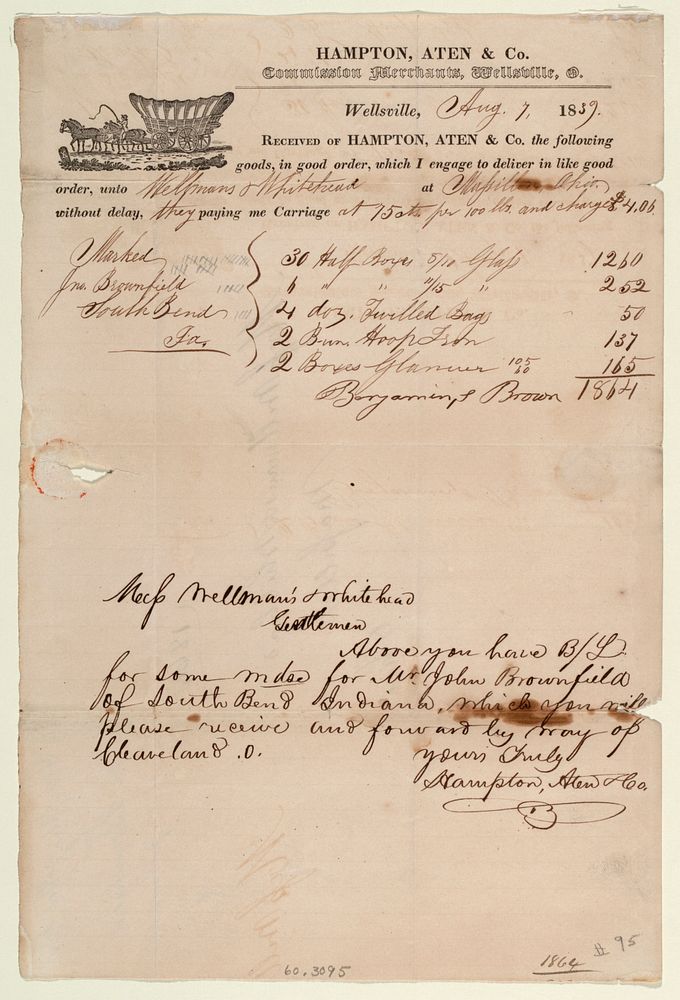 HAMPTON, ATEN & Co.
Commission Merchants, Wellsville, O.
Wellsville, Aug. 7, 1839.
RECEIVED OF HAMPTON, ATEN & Co. the following
goods, in good order, which I engage to deliver in like good
order, unto Wellmans & Whitehead at Massillon, Ohio,
without delay, they paying me Carriage at 75 cts. per 100 lbs. and charges $4.06
Marked 30 Half Boxes 8/10 Glass 1260
Jno. Brownfield 6 " " 11/15 " 252
South Bend 4 doz. Twilled Bags 50
Ia. 2 Bun. Hoop Iron 137
2 Boxes 105 60 165
Benjamin Brown 1864
Mess Wellman's & Whitehead
Gentlemen
Above you have B/L
for some mdse for Mr. John Brownfield
of South Bend Indiana, which you will
please receive and forward by way of
Cleaveland .O. yours Truly
Hampton, Aten & Co.
B
60.3095
1864
# 95